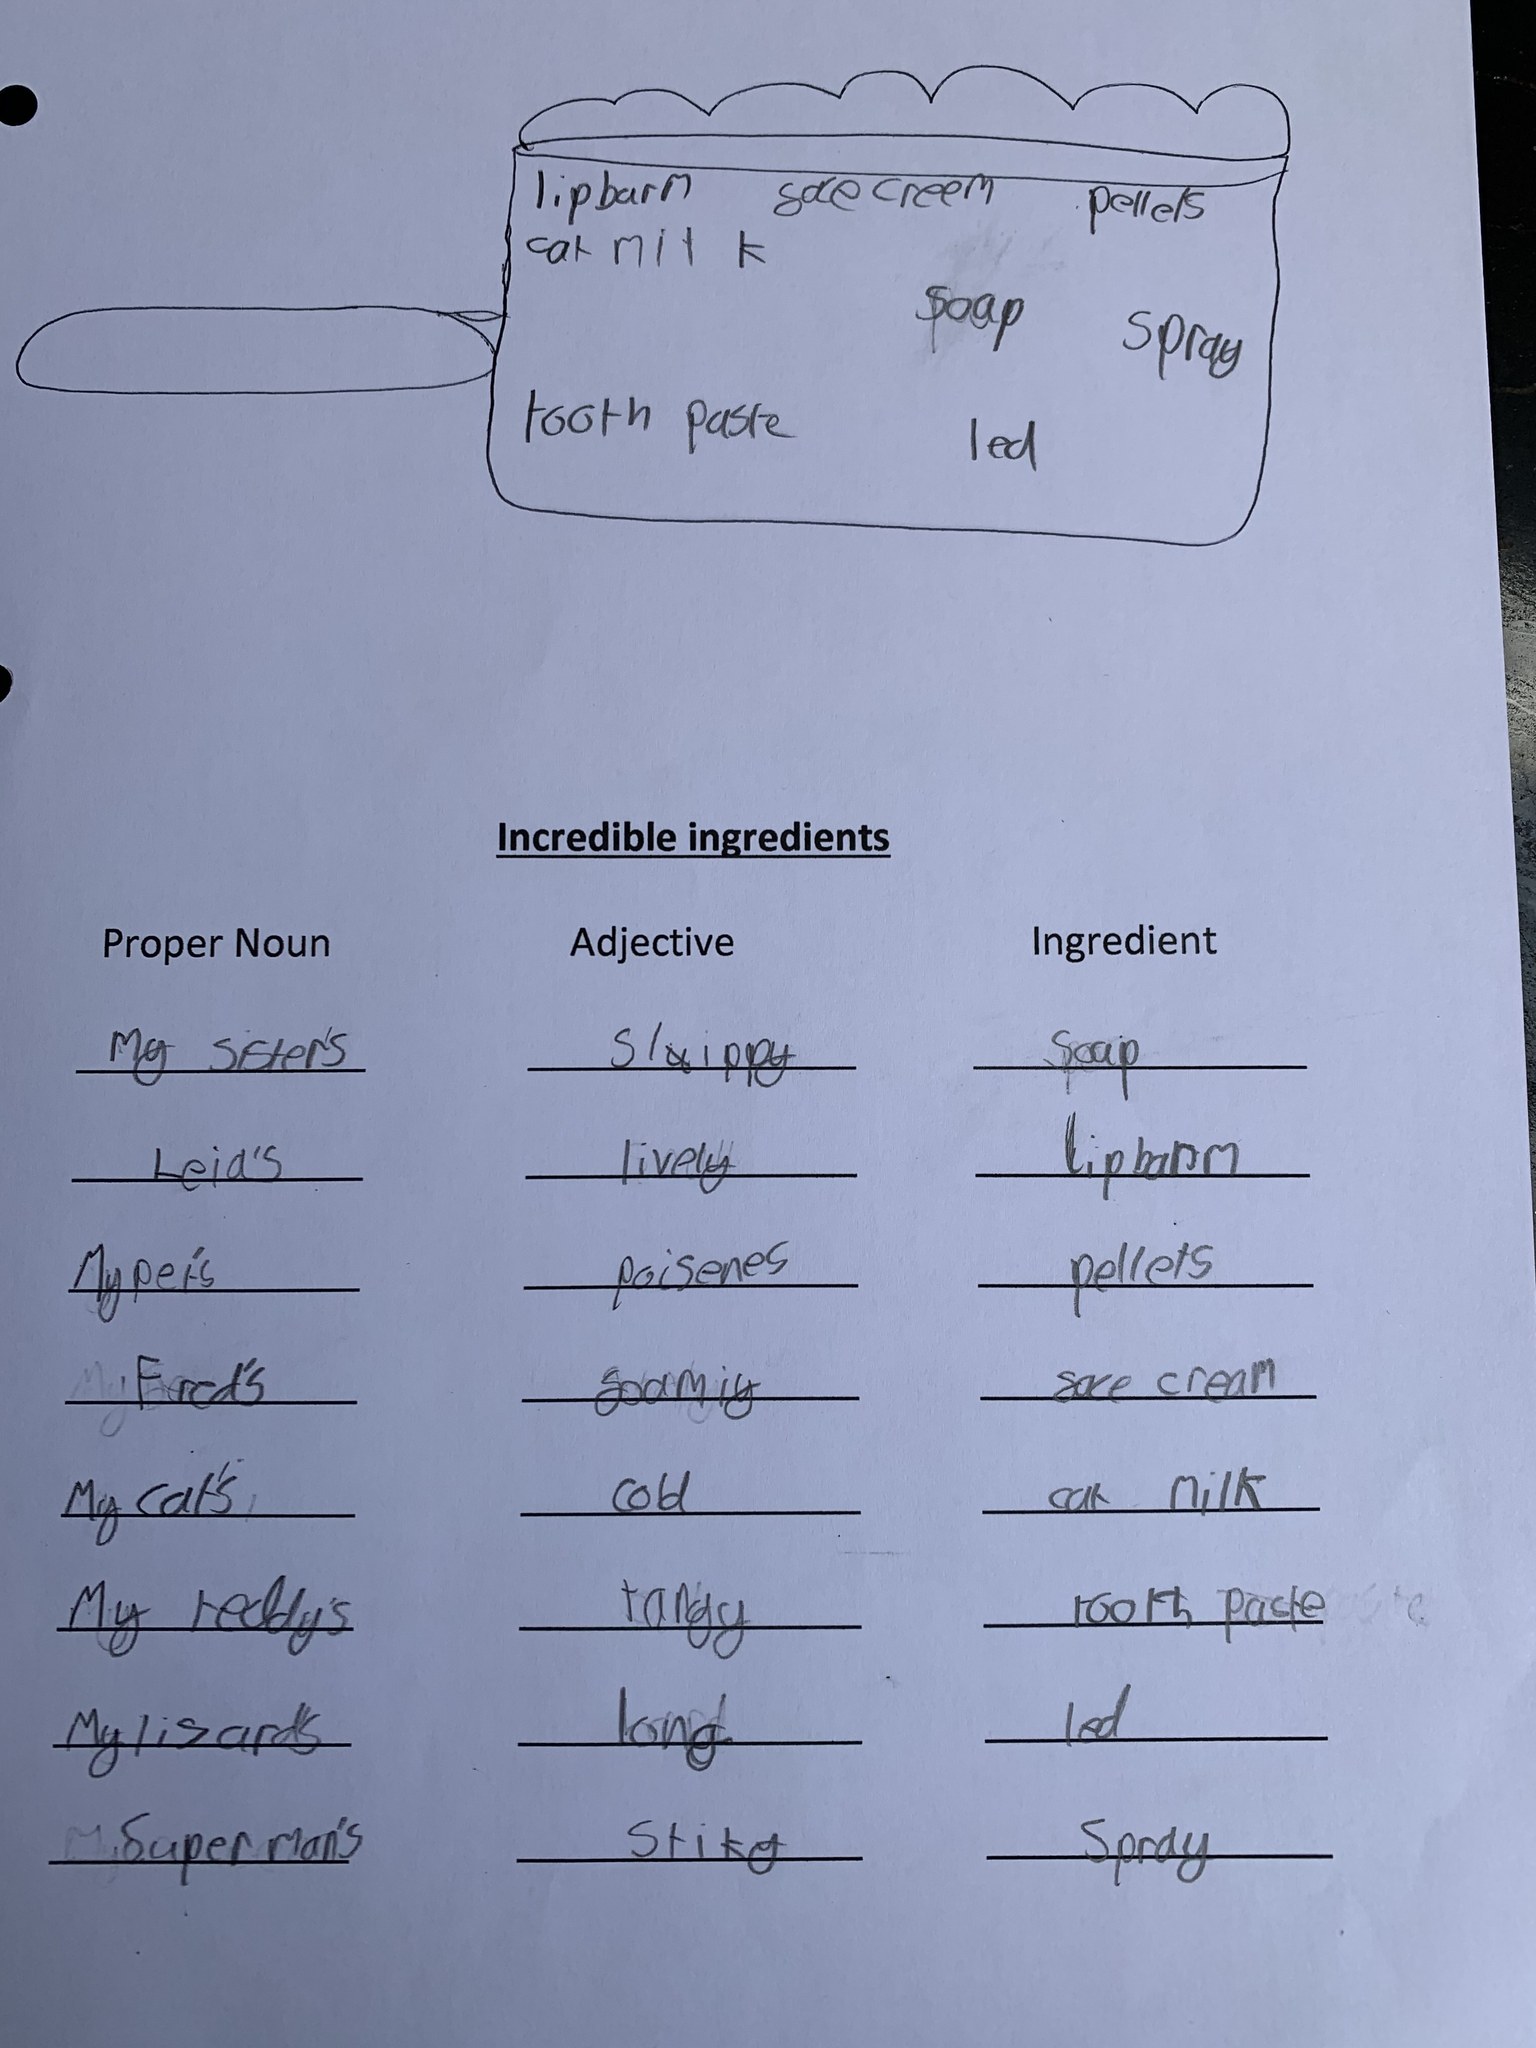 lipbarm sore creem pellets
cat milk
soap spray
tooth paste led
Incredible ingredients
Proper Noun Adjective Ingredient
My sister's slippy soap
Leia's lively lipbarm
My pet's poisenes pellets
Fred's sore cream
My cat's cold cat milk
My teddy's tangy tooth paste
My lizard's long led
Super man's stiky spray